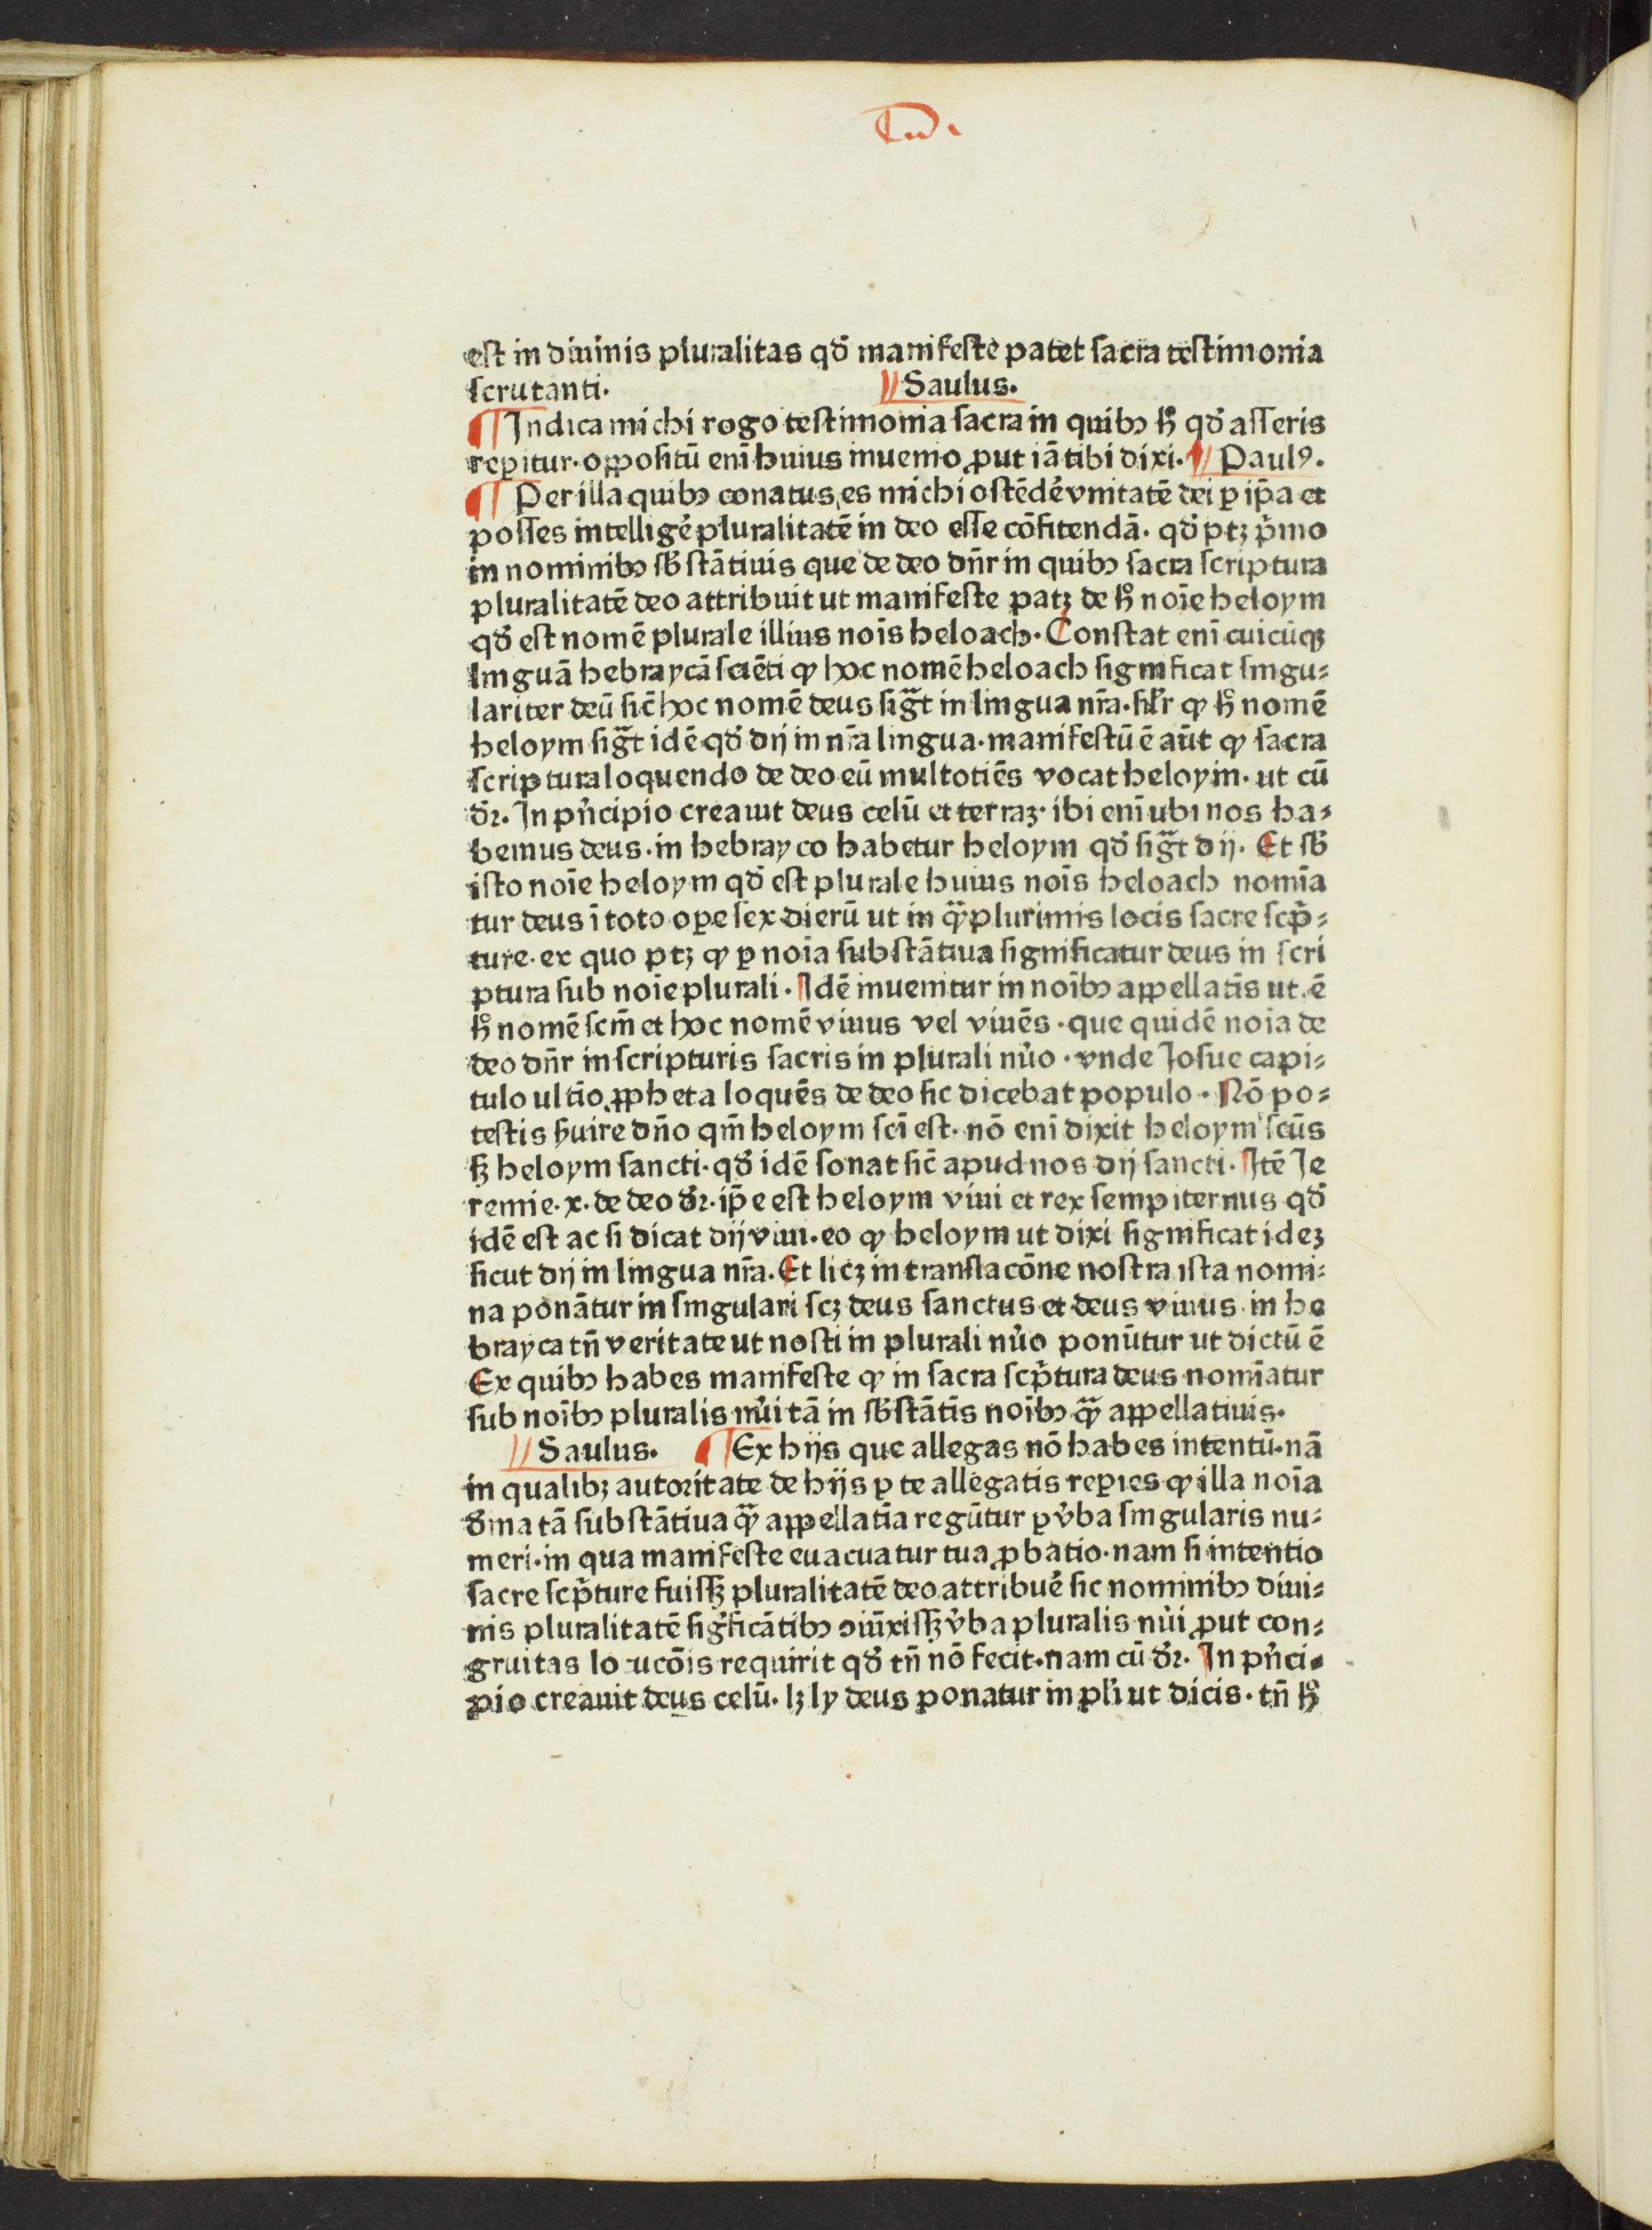 est in diuinis pluralitas qđ manifeste patet sacra testimonia
scrutanti. Saulus.
¶ Indica michi rogo testimonia sacra in quibꝰ hͦ qđ asseris
reꝑitur. opꝓositū eni̅ huius inuenio ꝓut iā tibi dixi. Paulꝰ.
¶ Per illa quibꝰ conatus es michi ostēdē vnitatē dei ꝑ ip̄a et
posses intelligē pluralitatē in deo esse cōfitendā. qđ ptꝫ p̄mo
in nominibꝰ sb̄stātiuis que de deo dn̄r in quibꝰ sacra scriptura
pluralitatē deo attribuit ut manifeste patꝫ de hͦ noīe heloym
qđ est nomē plurale illius noīs heloach. Constat enī cuicūqꝫ
linguā hebraycā sciēti ꝙ hoc nomē heloach significat singu-
lariter deū sic̄ hoc nomē deus sigᷓt in lingua nr̄a. sil̄r ꝙ hͦ nomē
heloym sigᷓt idē qđ dij in nr̄a lingua. manifestū ē aūt ꝙ sacra
scriptura loquendo de deo eū multotiēs vocat heloym. ut cū
dr̄. In pͥncipio creauit deus celū et terraꝫ. ibi enī ubi nos ha-
bemus deus. in hebrayco habetur heloym qđ sigᷓt dij. Et sb̄
isto noīe heloym qđ est plurale huius noīs heloach nomīa
tur deus ī toto oꝑe sex dierū ut in qᷓplurimis locis sacre scp̄-
ture. ex quo ptꝫ ꝙ ꝑ noīa substātiua significatur deus in scri
ptura sub noīe plurali. Idē inuenitur in noībꝰ appellatīs ut ē
hͦ nomē scm̄ et hoc nomē viuus vel viuēs. que quidē noīa de
deo dn̄r in scripturis sacris in plurali nūo. vnde Iosue capi-
tulo ultīo ꝓpheta loquēs de deo sic dicebat populo. Nō po-
testis ẜuire dn̄o qm̄ heloym scī est. nō enī dixit heloym scūs
sꝫ heloym sancti. qđ idē sonat sic̄ apud nos dij sancti. Itē Ie
remie. x. de deo dr̄. ip̄e est heloym viui et rex sempiternus qđ
idē est ac si dicat dij viui. eo ꝙ heloym ut dixi significat ideꝫ
sicut dij in lingua nr̄a. Et licꝫ in translacōne nostra ista nomi-
na ponātur in singulari scꝫ deus sanctus et deus viuus in he
brayca tn̄ veritate ut nosti in plurali nūo ponūtur ut dictū ē
Ex quibꝰ habes manifeste ꝙ in sacra scp̄tura deus nomīatur
sub noībꝰ pluralis nūi tā in sb̄stātīs noībꝰ qᷓ appellatiuis.
Saulus. ¶ Ex hijs que allegas nō habes intentū. nā
in qualibꝫ autoritate de hijs ꝑ te allegatis reꝑies ꝙ illa noīa
dīna tā substātiua qᷓ appellatīa regūtur ꝑ v̄ba singularis nu-
meri. in qua manifeste euacuatur tua ꝓbatio. nam si intentio
sacre scp̄ture fuissꝫ pluralitatē deo attribuē sic nominibꝰ diui-
nis pluralitatē sigͥficātibꝰ ꝯiūxissꝫ v̄ba pluralis nūi ꝓut con-
gruitas locucōis requirit qđ tn̄ nō fecit. nam cū dr̄. In pͥnci-
pio creauit deus celū. lꝫ ly deus ponatur in pl̄i ut dicis. tn̄ hͦ